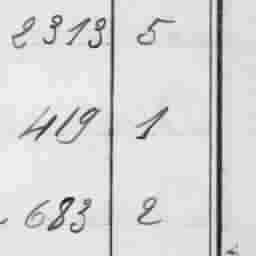 2313 5
419 1
683 2